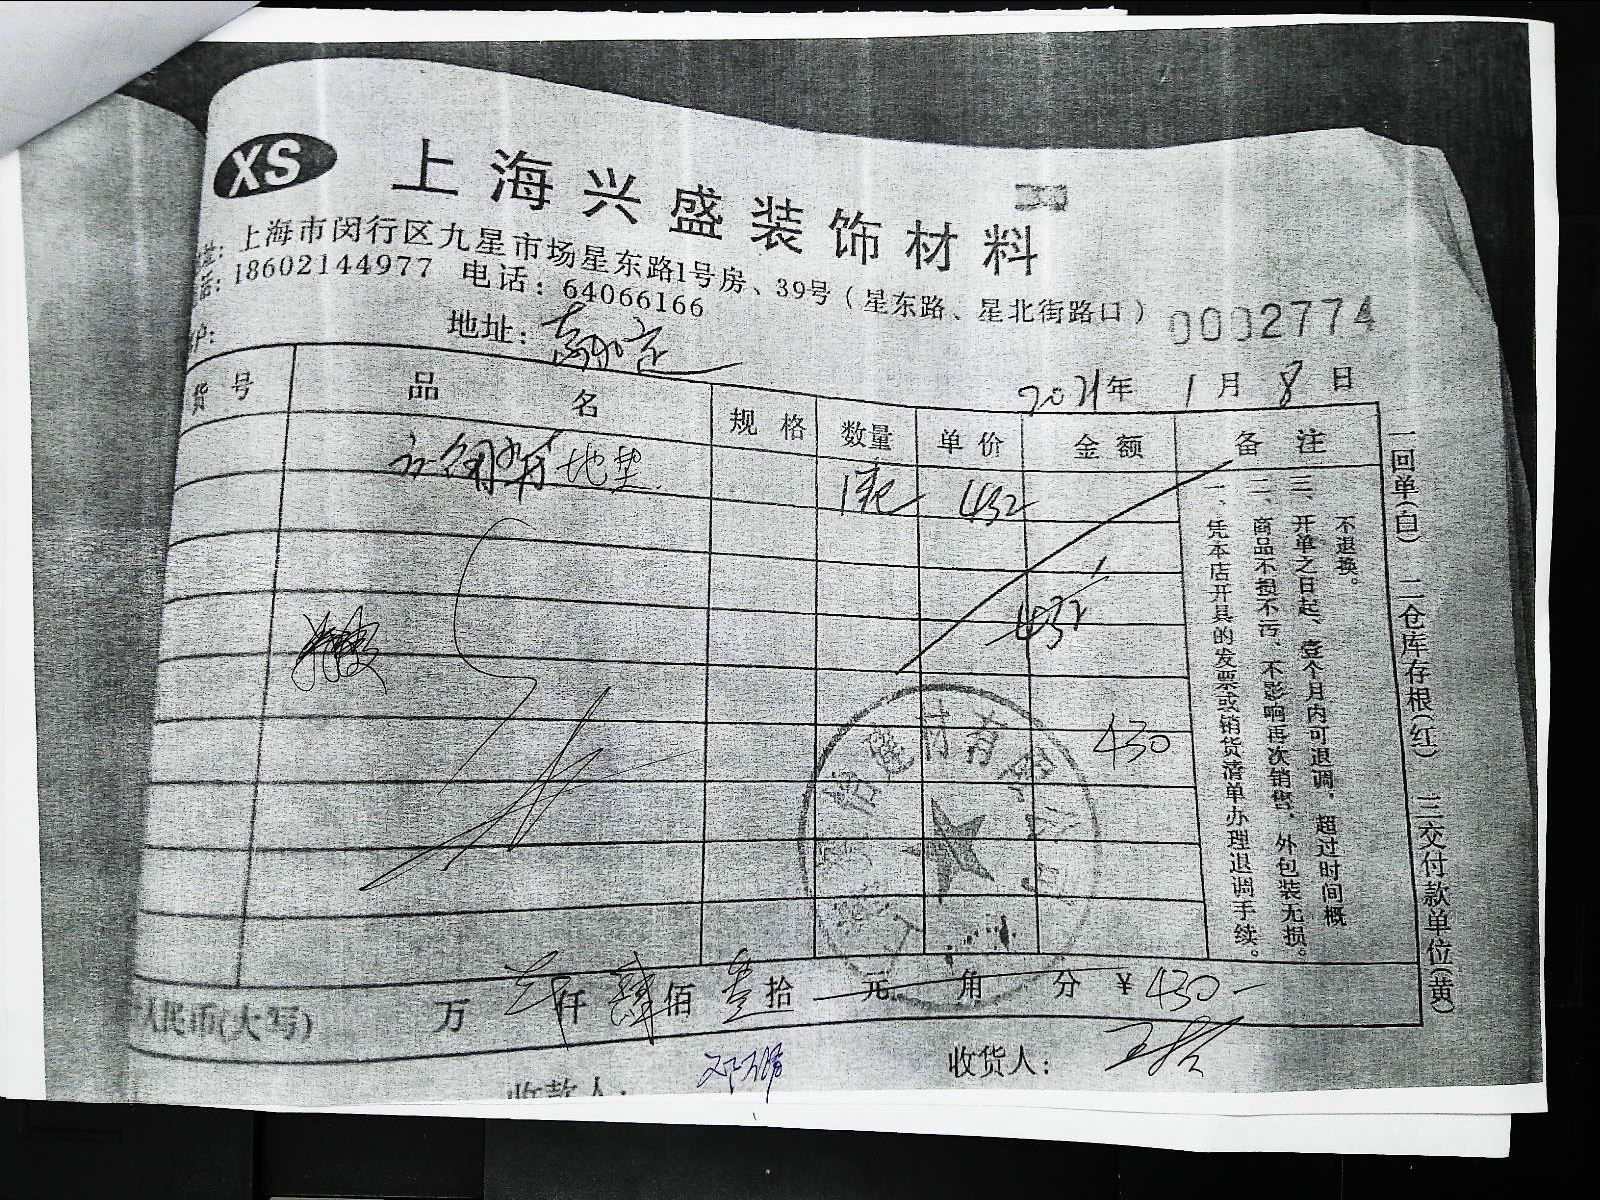 XS 上海兴盛装饰材料
址：上海市闵行区九星市场星东路1号房、39号（星东路、星北街路口）
话：18602144977 电话：64066166
0002774
户： 地址：
2021年 1月 8日
货号 品名 规格 数量 单价 金额 备注
地垫 432
432
430
一、凭本店开具的发票或销货清单办理退调手续。
二、商品不损不污、不影响再次销售，外包装无损。
三、开单之日起，壹个月内可退调，超过时间概
不退换。
建材有限公司
人民币(大写) 万 仟肆佰叁拾元角分 ¥430-
收款人： 收货人：
一回单(白) 二仓库存根(红) 三交付款单位(黄)